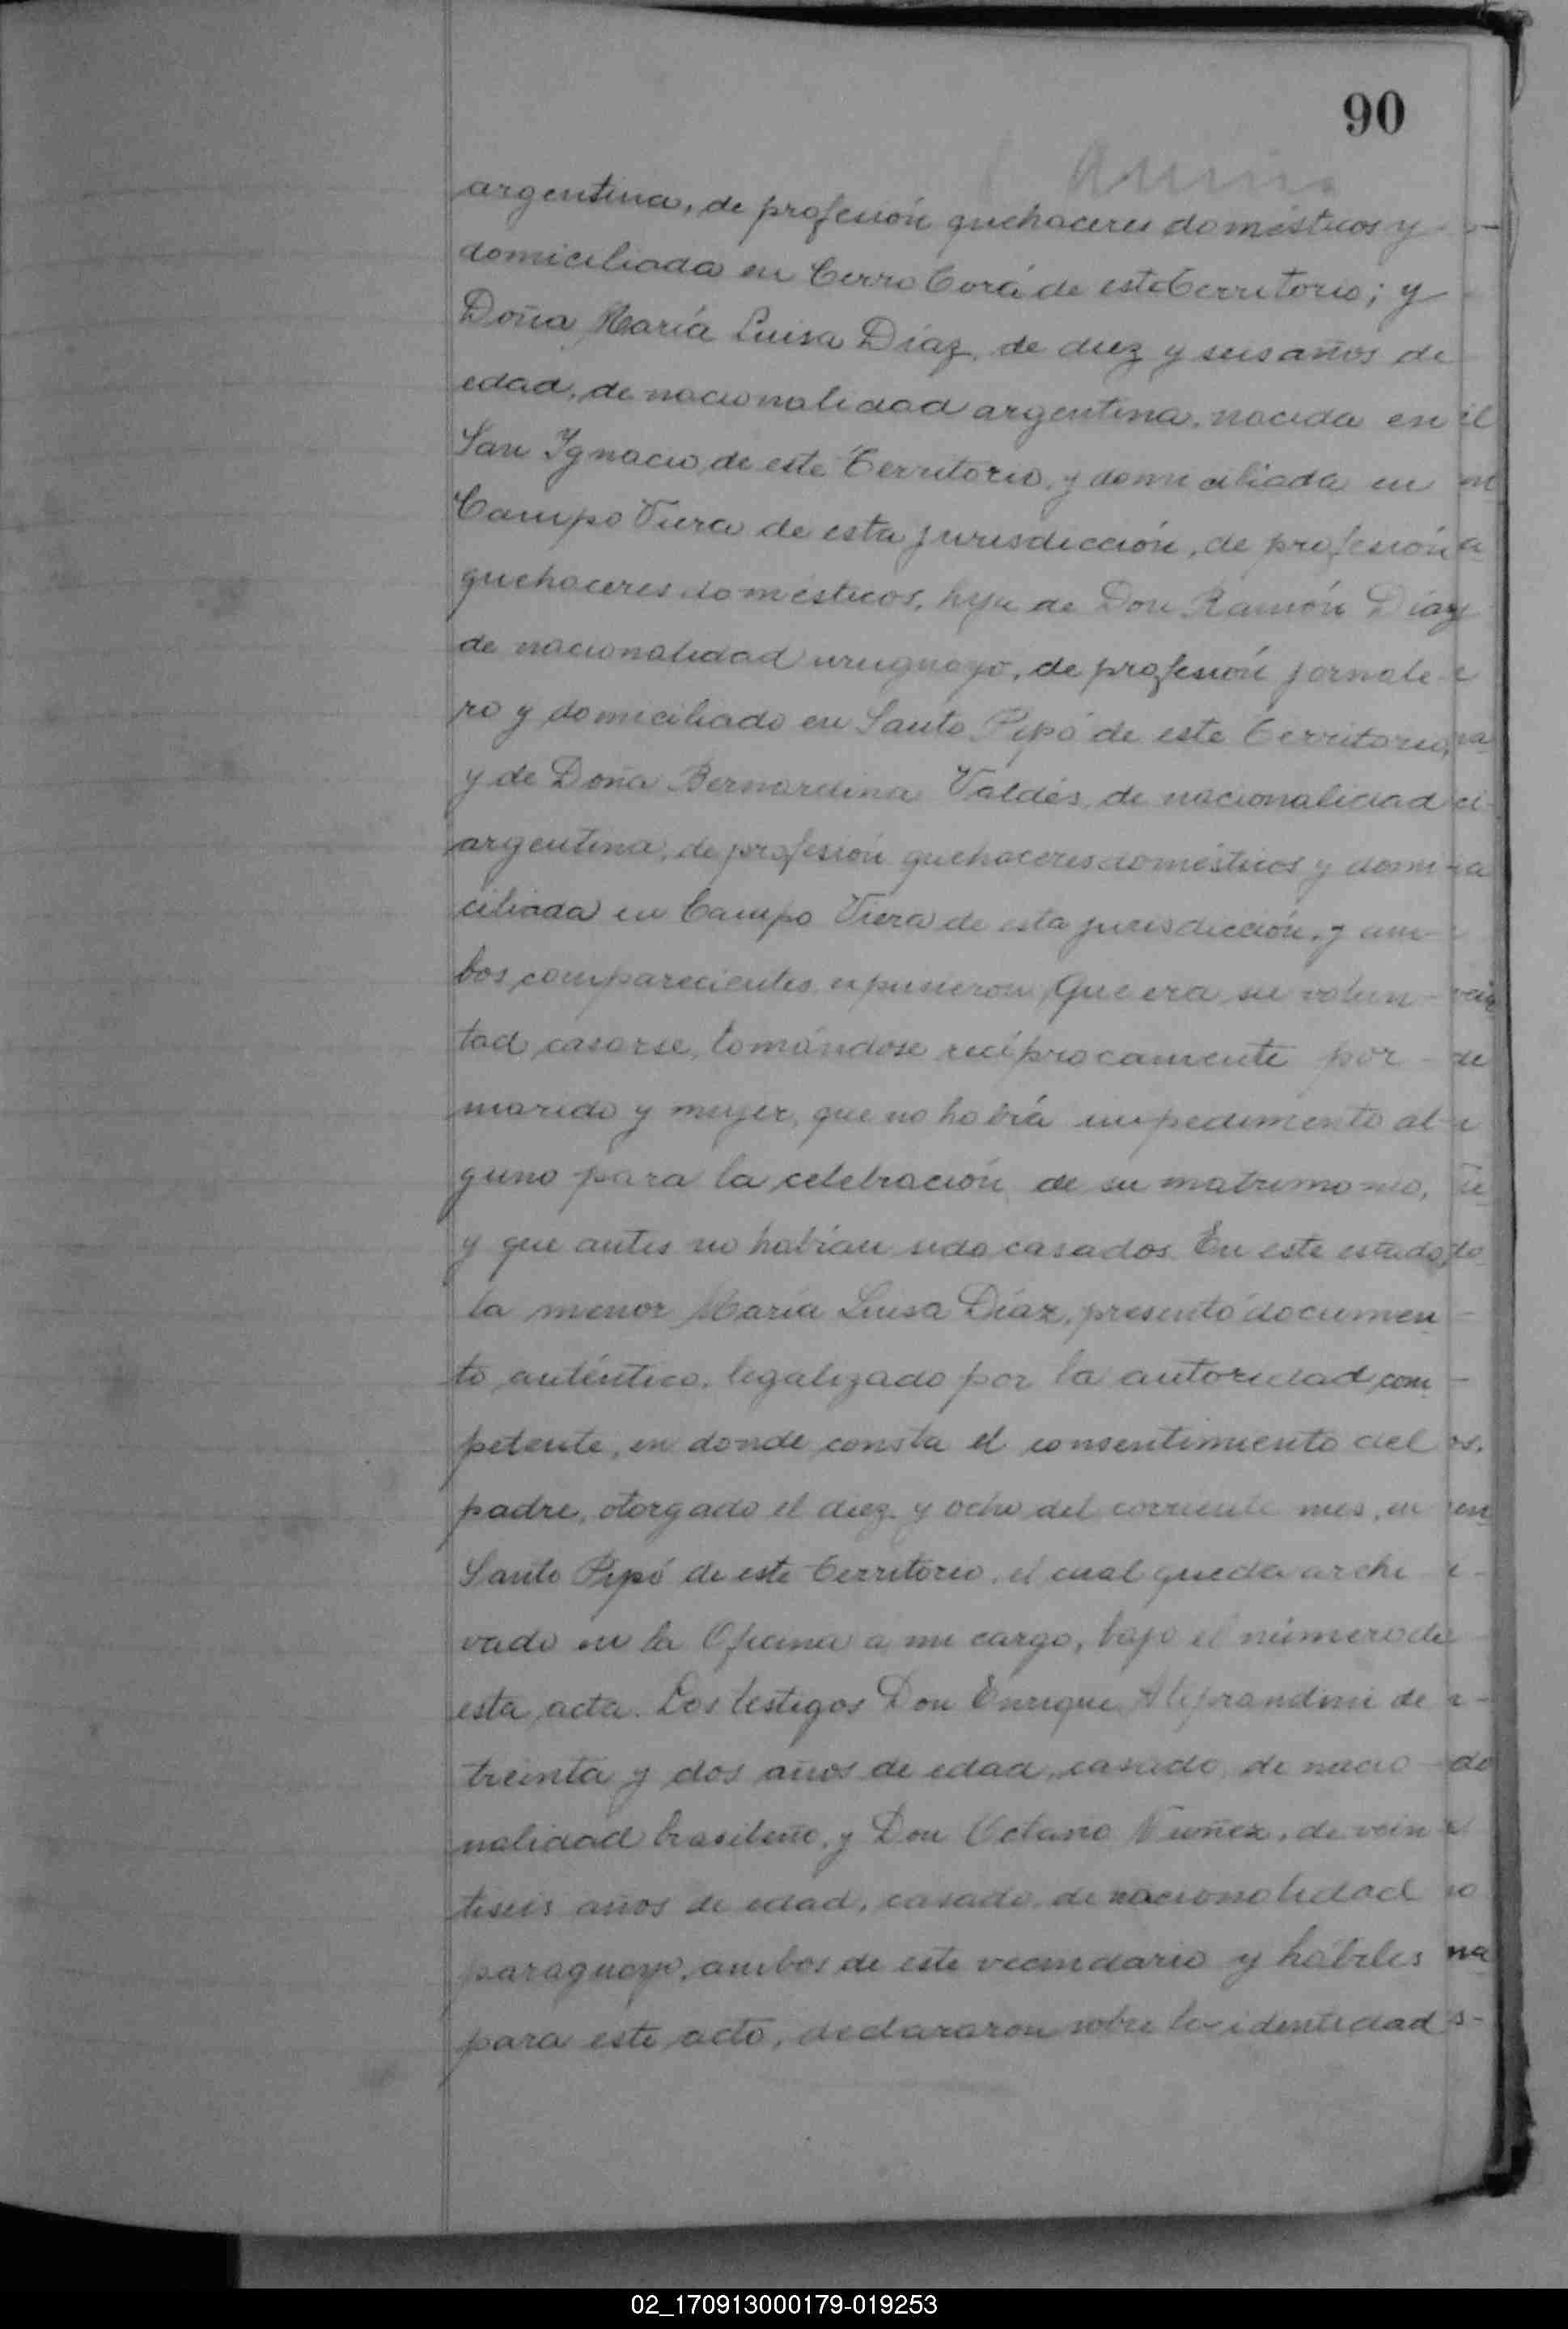 90
argentina, de profesión quehaceres domésticos y
domiciliada en Cerro Corá de este Territorio; y
Doña María Luisa Díaz, de diez y seis años de
edad, de nacionalidad argentina, nacida en
San Ignacio, de este Territorio, y domiciliada en
Campo Viera de esta jurisdicción, de profesión
quehaceres domésticos, hija de Don Ramón Díaz
de nacionalidad uruguayo, de profesión jornale-
ro y domiciliado en Santo Pipó de este Territorio,
y de Doña Bernardina Valdés, de nacionalidad
argentina, de profesión quehaceres domésticos y domi-
ciliada en Campo Viera de esta jurisdicción, y am-
bos comparecientes expusieron: Que era su volun-
tad casarse, tomándose recíprocamente por
marido y mujer, que no había impedimento al-
guno para la celebración de su matrimonio,
y que antes no habían sido casados. En este estado,
la menor María Luisa Díaz, presentó documen
to auténtico, legalizado por la autoridad com
petente, en donde consta el consentimiento del
padre, otorgado el diez y ocho del corriente mes, en
Santo Pipó de este Territorio, el cual queda archi
vado en la Oficina a mi cargo, bajo el número de
esta acta. Los testigos Don Enrique Aliprandini de
treinta y dos años de edad, casado, de nacio
nalidad brasileño, y Don Octavio Nuñez, de vein
tiseis años de edad, casado, de nacionalidad
paraguayo, ambos de este vecindario y hábiles
para este acto, declararon sobre la identidad
02_170913000179-019253